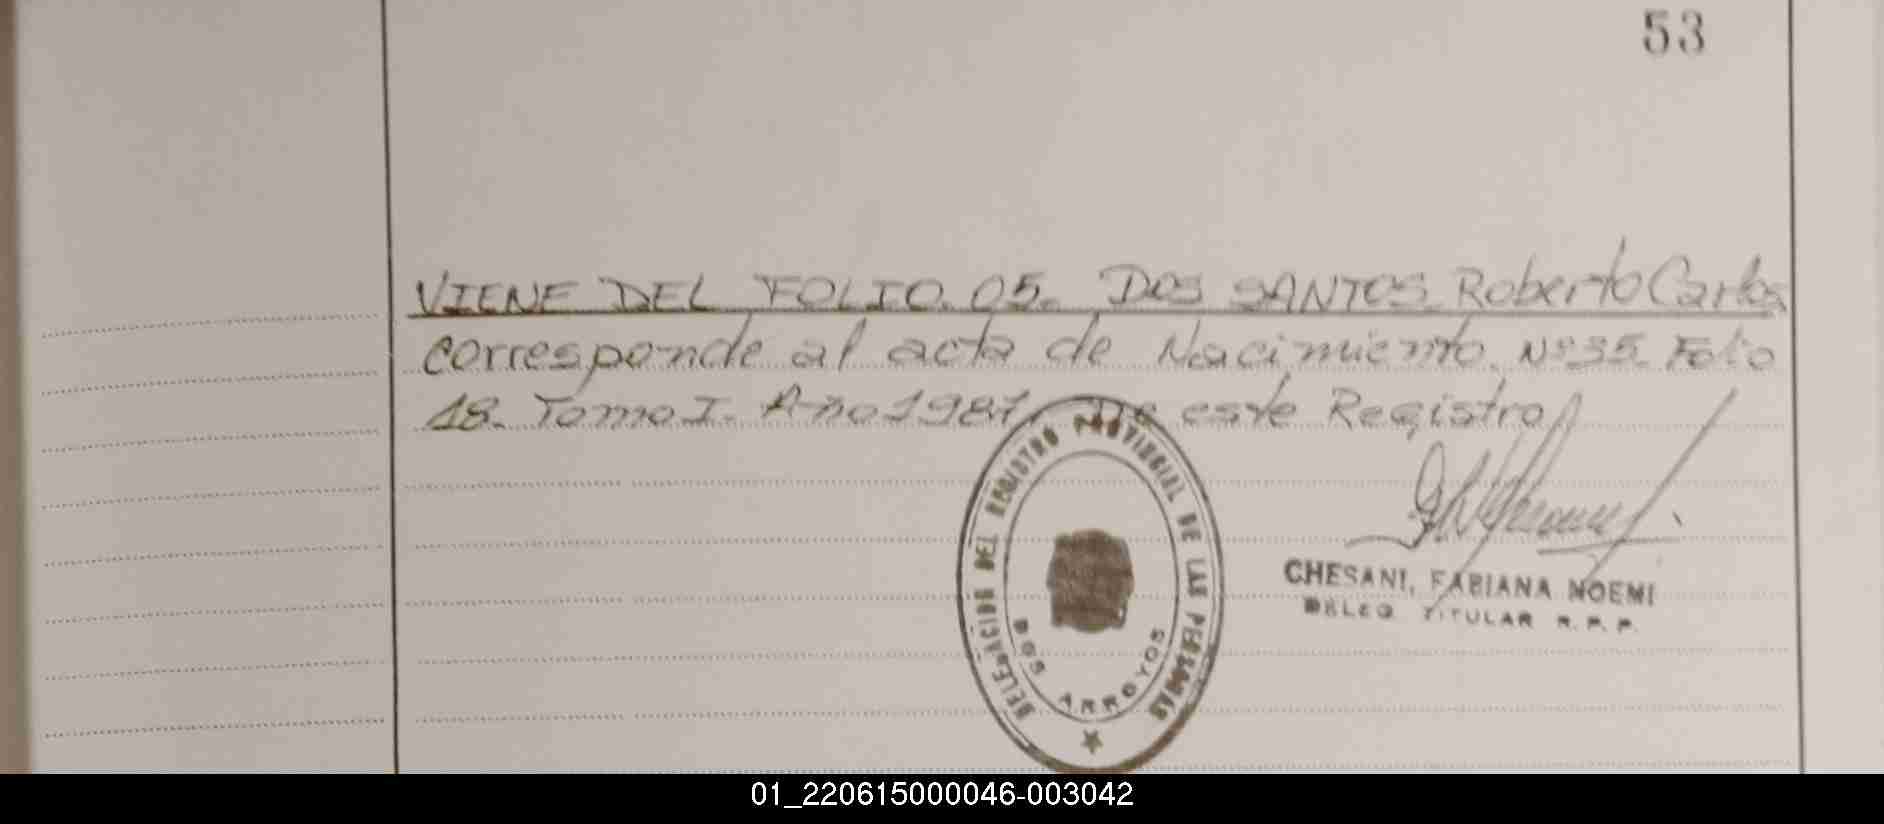 53
VIENE DEL FOLIO. 05. DOS SANTOS Roberto Carlos
corresponde al acta de Nacimiento. Nº 35. Folio
18. Tomo I. Año 1987. De este Registro
DELEGACION DEL REGISTRO PROVINCIAL DE LAS PERSONAS
DOS ARROYOS
CHESANI, FABIANA NOEMI
DELEG. TITULAR R. P. P.
01_220615000046-003042